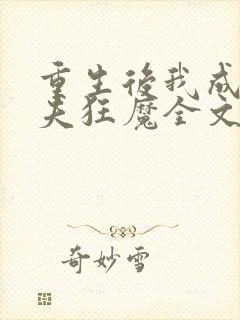 重生後我成
夫狂魔全文
奇妙雪